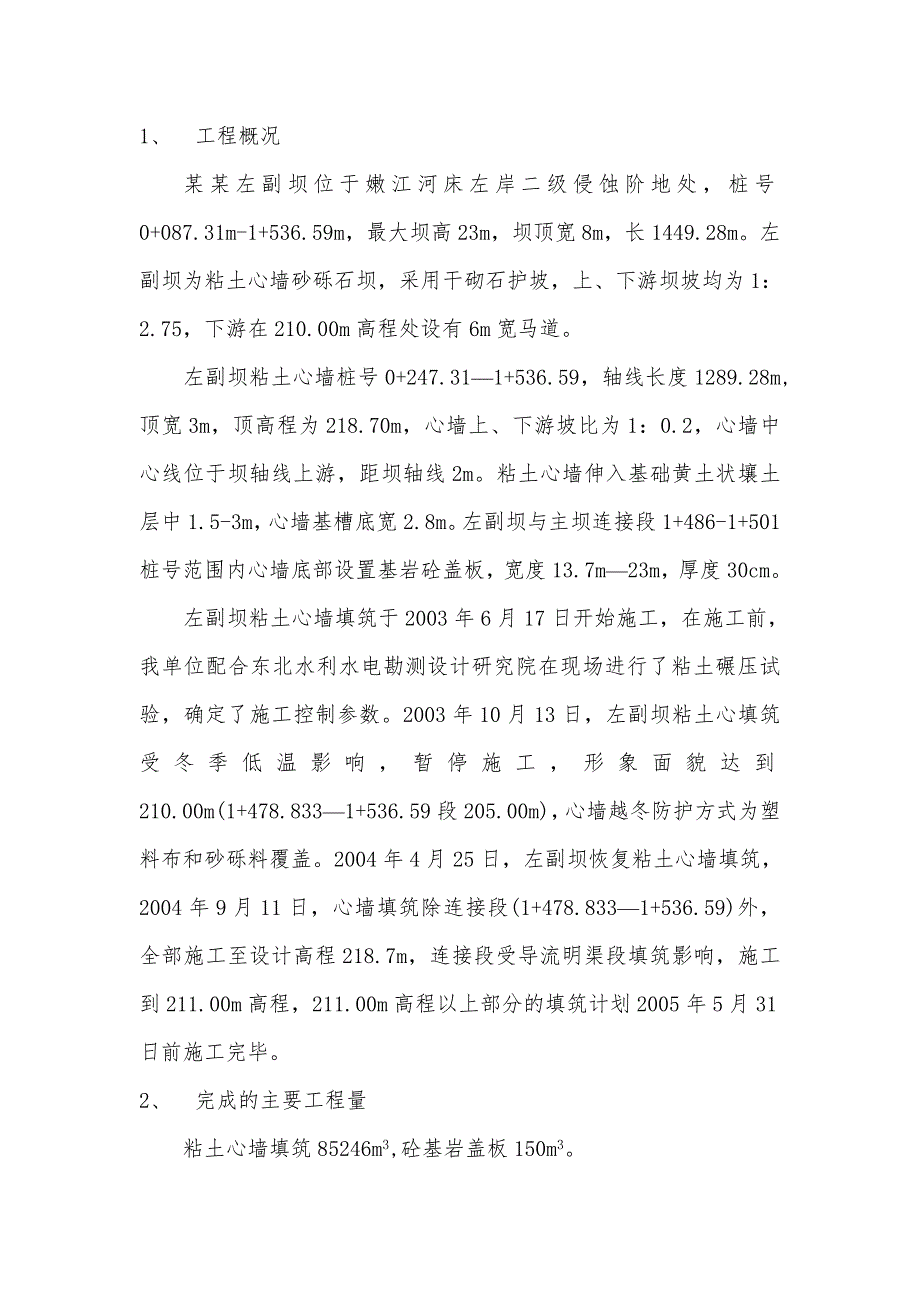 1、　工程概况
某某左副坝位于嫩江河床左岸二级侵蚀阶地处，桩号
0+087.31m-1+536.59m，最大坝高23m，坝顶宽8m，长1449.28m。左
副坝为粘土心墙砂砾石坝，采用干砌石护坡，上、下游坝坡均为1：
2.75，下游在210.00m高程处设有6m宽马道。
左副坝粘土心墙桩号0+247.31—1+536.59，轴线长度1289.28m,
顶宽3m，顶高程为218.70m，心墙上、下游坡比为1：0.2，心墙中
心线位于坝轴线上游，距坝轴线2m。粘土心墙伸入基础黄土状壤土
层中1.5-3m，心墙基槽底宽2.8m。左副坝与主坝连接段1+486-1+501
桩号范围内心墙底部设置基岩砼盖板，宽度13.7m—23m，厚度30cm。
左副坝粘土心墙填筑于2003年6月17日开始施工，在施工前，
我单位配合东北水利水电勘测设计研究院在现场进行了粘土碾压试
验，确定了施工控制参数。2003年10月13日，左副坝粘土心填筑
受冬季低温影响，暂停施工，形象面貌达到
210.00m(1+478.833—1+536.59段205.00m)，心墙越冬防护方式为塑
料布和砂砾料覆盖。2004年4月25日，左副坝恢复粘土心墙填筑，
2004年9月11日，心墙填筑除连接段(1+478.833—1+536.59)外，
全部施工至设计高程218.7m，连接段受导流明渠段填筑影响，施工
到211.00m高程，211.00m高程以上部分的填筑计划2005年5月31
日前施工完毕。
2、　完成的主要工程量
粘土心墙填筑85246m³,砼基岩盖板150m³。